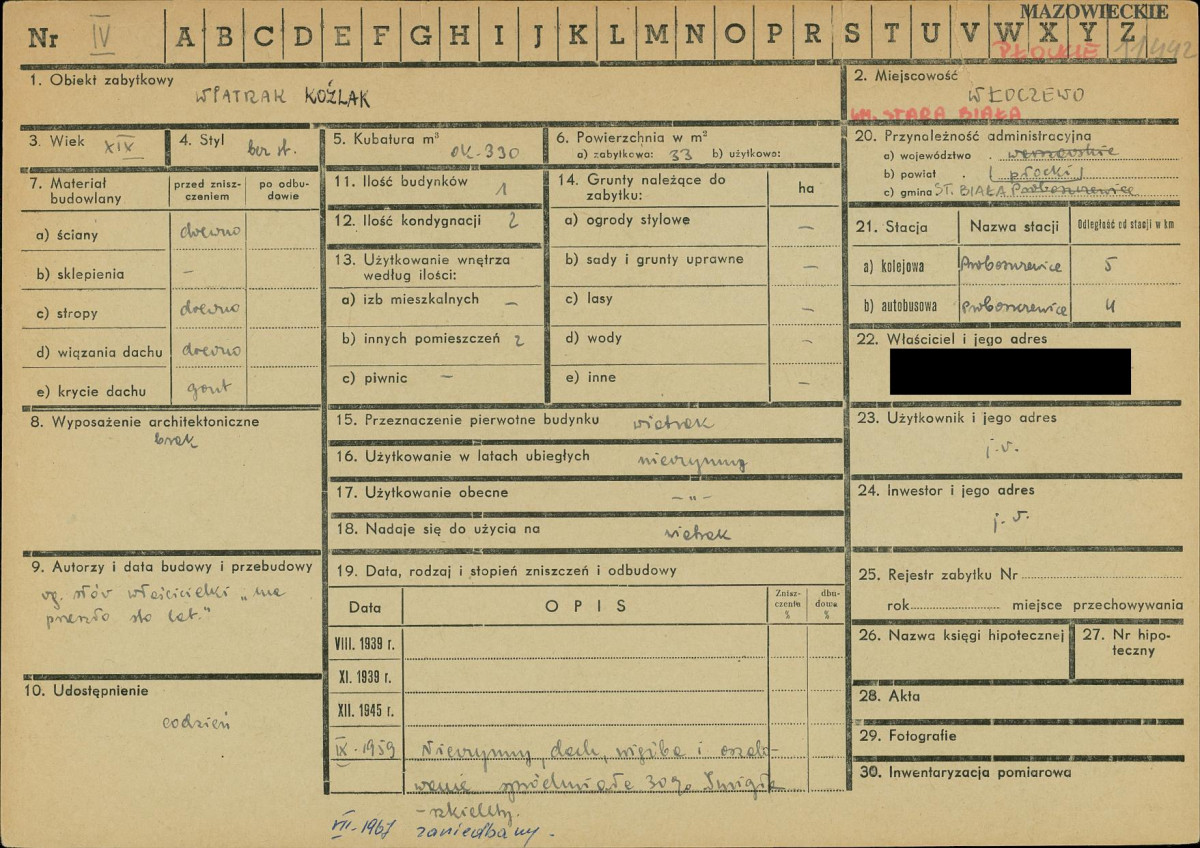 MAZOWIECKIE
Nr IV A B C D E F G H I J K L M N O P R S T U V W X Y Z
PŁOCKIE 11442
1. Obiekt zabytkowy
WIATRAK KOŹLAK
2. Miejscowość
WŁOCZEWO
GM. STARA BIAŁA
3. Wiek XIX
4. Styl bez st.
5. Kubatura m³ ok. 330
6. Powierzchnia w m²
a) zabytkowa: 33 b) użytkowa:
20. Przynależność administracyjna
a) województwo warszawskie
b) powiat (płocki)
c) gmina ST. BIAŁA Proboszczewice
7. Materiał budowlany
przed znisz-
czeniem
po odbu-
dowie
a) ściany drewno
b) sklepienia –
c) stropy drewno
d) wiązania dachu drewno
e) krycie dachu gont
11. Ilość budynków 1
12. Ilość kondygnacji 2
13. Użytkowanie wnętrza
według ilości:
a) izb mieszkalnych –
b) innych pomieszczeń 2
c) piwnic –
14. Grunty należące do
zabytku:
ha
a) ogrody stylowe –
b) sady i grunty uprawne –
c) lasy –
d) wody –
e) inne –
21. Stacja Nazwa stacji Odległość od stacji w km
a) kolejowa Proboszczewice 5
b) autobusowa Proboszczewice 4
22. Właściciel i jego adres
8. Wyposażenie architektoniczne
brak
15. Przeznaczenie pierwotne budynku wiatrak
16. Użytkowanie w latach ubiegłych nieczynny
17. Użytkowanie obecne – „ –
18. Nadaje się do użycia na wiatrak
23. Użytkownik i jego adres
j.w.
24. Inwestor i jego adres
j.w.
9. Autorzy i data budowy i przebudowy
wg. słów właścicielki „ma
przeszło sto lat."
10. Udostępnienie
codzień
19. Data, rodzaj i stopień zniszczeń i odbudowy
Data OPIS
Znisz-
czenia
%
dbu-
dowa
%
VIII. 1939 r.
XI. 1939 r.
XII. 1945 r.
IX - 1959 Nieczynny, dach, więźba i oszalo-
wanie spróchniałe 30%. Śmigła
- szkielety.
VII - 1967 zaniedbany.
25. Rejestr zabytku Nr
rok miejsce przechowywania
26. Nazwa księgi hipotecznej
27. Nr hipo-
teczny
28. Akta
29. Fotografie
30. Inwentaryzacja pomiarowa